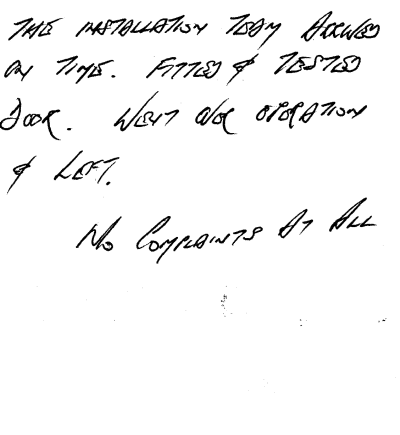 THE INSTALLATION TEAM ARRIVED
ON TIME. FITTED & TESTED
DOOR. WENT OVER OPERATION
& LEFT.
NO COMPLAINTS AT ALL